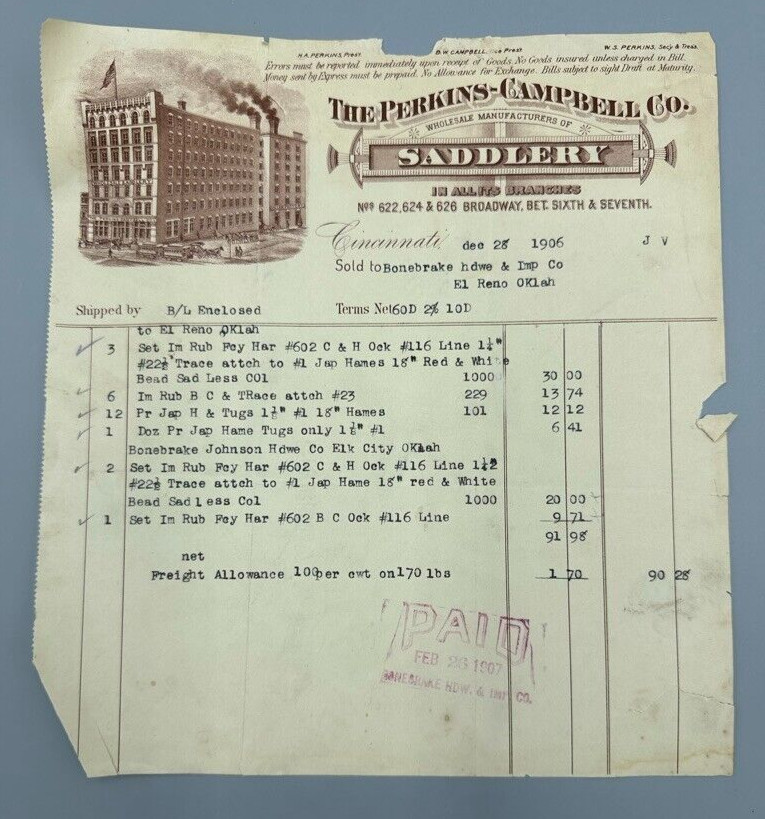 H.A. PERKINS, Prest. B.W. CAMPBELL, Vice Prest W.S. PERKINS, Secy & Treas.
Errors must be reported immediately upon receipt of Goods. No Goods insured unless charged in Bill.
Money sent by Express must be prepaid. No Allowance for Exchange. Bills subject to sight Draft at Maturity.
THE PERKINS-CAMPBELL CO.
WHOLESALE MANUFACTURERS OF
SADDLERY
IN ALL ITS BRANCHES
Nos 622,624 & 626 BROADWAY, BET. SIXTH & SEVENTH.
Cincinnati, dec 28 1906 J V
Sold to Bonebrake hdwe & Imp Co
El Reno OKlah
Shipped by B/L Enclosed Terms Net 60D 2% 10D
to El Reno OKlah
3 Set Im Rub Fcy Har #602 C & H Ock #116 Line 1¼"
#22½ Trace attch to #1 Jap Hames 18" Red & White
Bead Sad Less COl 1000 30 00
6 Im Rub B C & TRace attch #23 229 13 74
12 Pr Jap H & Tugs 1½" #1 18" Hames 101 12 12
1 Doz Pr Jap Hame Tugs only 1½" #1 6 41
Bonebrake Johnson Hdwe Co Elk City OKlah
2 Set Im Rub Fcy Har #602 C & H Ock #116 Line
#22½ Trace attch to #1 Jap Hame 18" red & White
Bead Sad Less Col 1000 20 00
1 Set Im Rub Fcy Har #602 B C Ock #116 Line 9 71
91 98
net
Freight Allowance 100per cwt on170 lbs 1 70 90 28
PAID
FEB 26 1907
BONEBRAKE HDW. & IMP. CO.